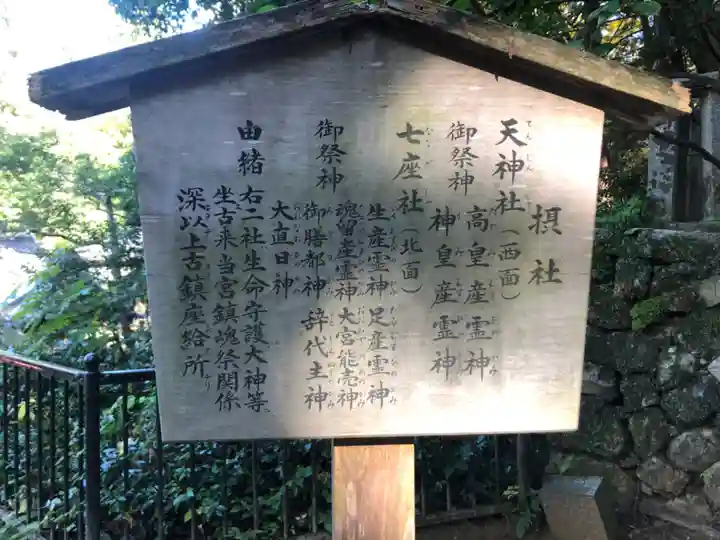 摂社
天神社(西面)
御祭神 高皇産霊神
神皇産霊神
七座社(北面)
生産霊神 足産霊神
御祭神 魂留産霊神 大宮能売神
御膳都神 辞代主神
大直日神
由緒 右二社生命守護大神等
坐古来当宮鎮魂祭関係
深以上古鎮座給所